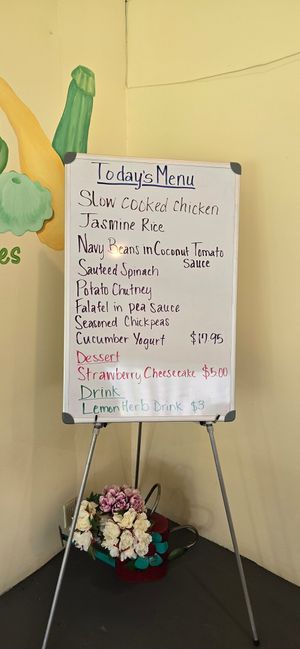 Today's Menu
Slow cocked chicken
Jasmine Rice
Navy Beans in Coconut Tomato
Sauce
Sauteed Spinach
Potato Chutney
Falafel in pea sauce
Seasoned Chickpeas
Cucumber Yogurt $17.95
Dessert
Strawberry Cheesecake $5.00
Drink
Lemon Herb Drink $3